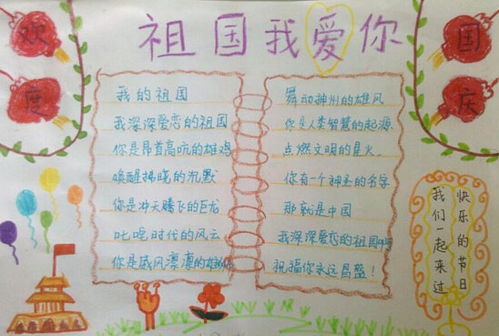 欢度
国庆
祖国我爱你
我的祖国
我深深爱恋的祖国
你是昂首高吭的雄鸡
唤醒拂晓的沉默
你是冲天腾飞的巨龙
叱咤时代的风云
你是威风凛凛的雄狮
舞动神州的雄风
你是人类智慧的起源
点燃文明的星火
你有一个神圣的名字
那就是中国
我深深爱恋的祖国
祝福你永远昌盛!
快乐的节日
我们一起来过